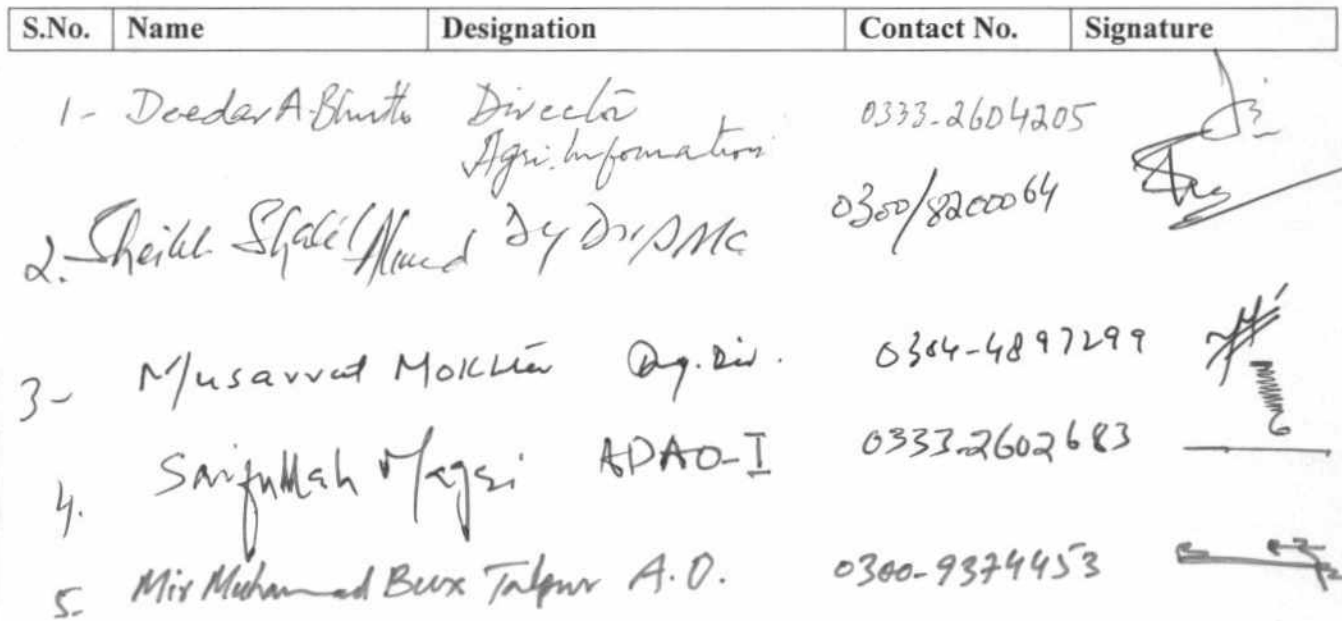 S.No. Name Designation Contact No. Signature
1- Deedar A. Bhutto Director 0333-2604205
Agri. Information
2. Sheikh Shakil Ahmed Dy Dir/ 0300/8200064
3- Musavvat Dy. Dir. 0304-4897299
4. Saifullah Magsi ADAO-I 0333-2602683
5- Mir Muhammad Bux Talpur A.O. 0300-9374453